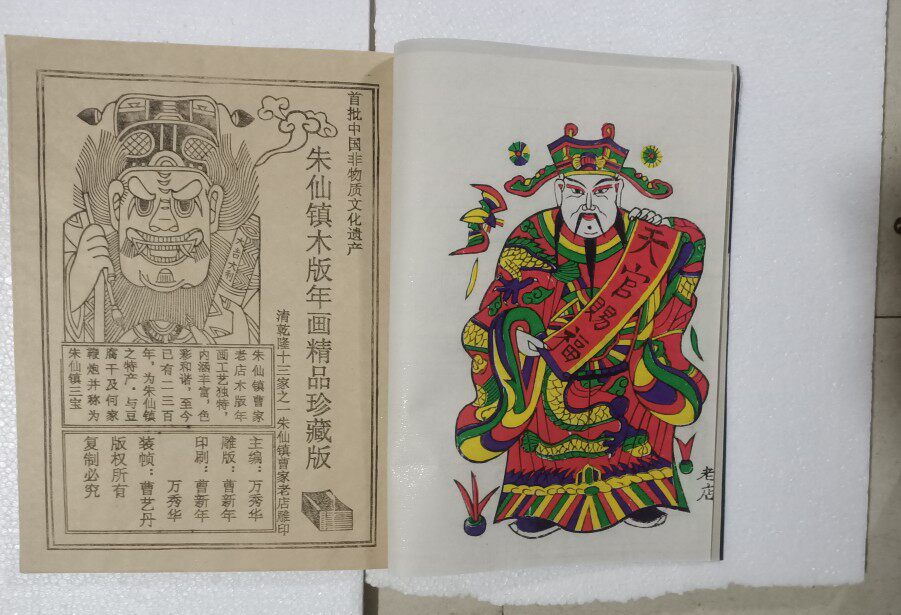 首批中国非物质文化遗产
朱仙镇木版年画精品珍藏版
清乾隆十三家之一 朱仙镇曹家老店雕印
大吉大利
朱仙镇曹家
老店木版年
画工艺独特，
内涵丰富，色
彩和谐，至今
已有二三百
年，为朱仙镇
之特产·与豆
腐干及何家
鞭炮并称为
朱仙镇三宝
主编：万秀华
雕版：曹新年
印刷：曹新年
万秀华
装帧：曹艺丹
版权所有
复制必究
天官賜福
老店